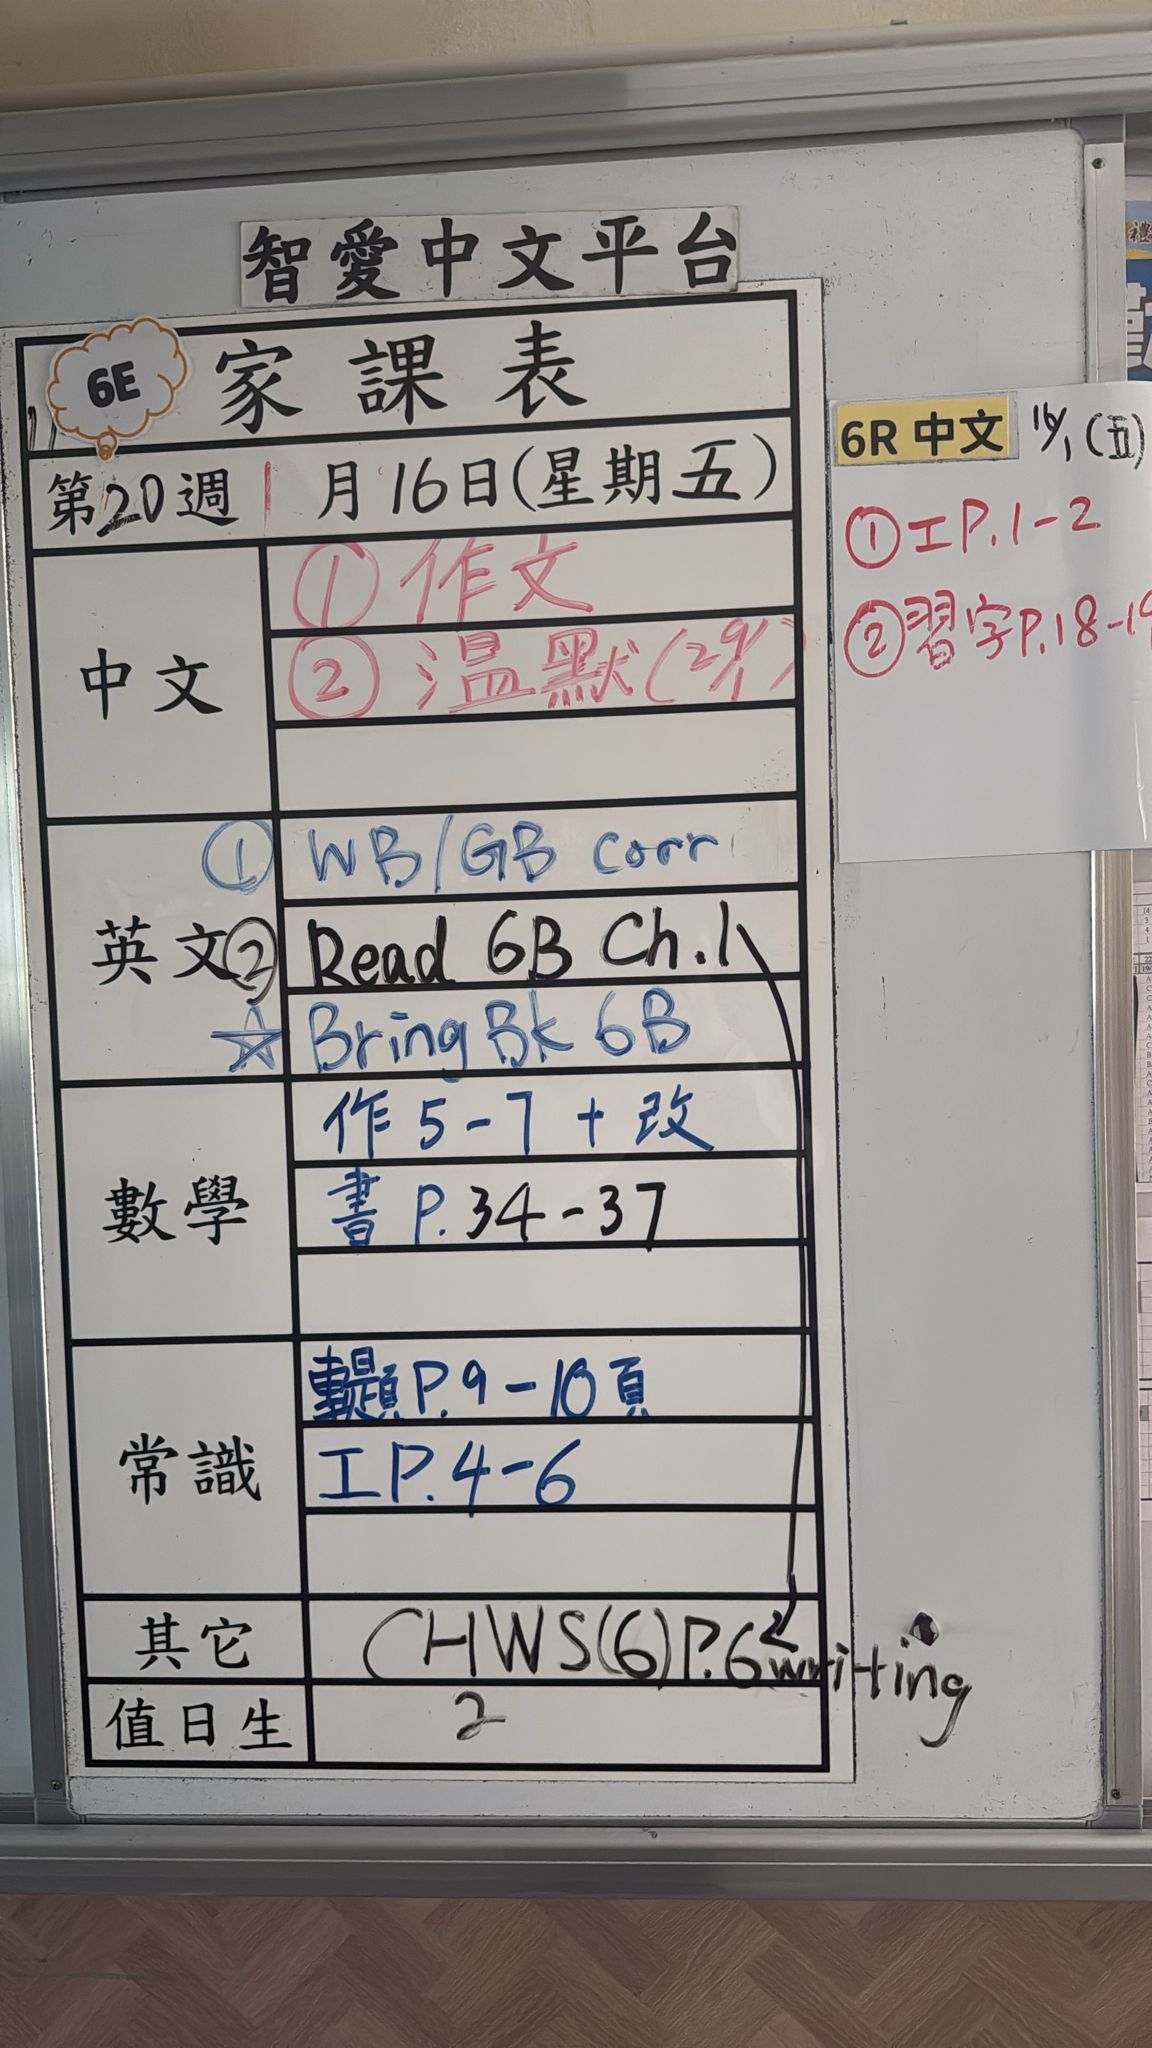 智愛中文平台
6E 家課表
第20週 1月16日(星期五)
中文
① 作文
② 温默(29/1)
英文
① WB/GB corr
② Read 6B Ch.1
☆ Bring Bk 6B
數學
作 5-7 + 改
書 P.34-37
常識
P.9-10頁
工P.4-6
其它
CHWS(6)P.6
writing
值日生
2
6R 中文 16/1 (五)
① 工P.1-2
② 習字P.18-19